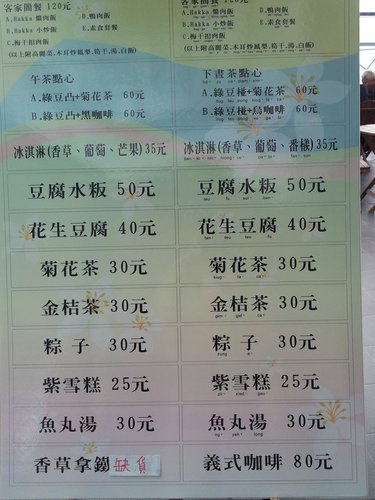 客家簡餐 120元
A.Hakka 爌肉飯 D.鴨肉飯
B.Hakka 小炒飯 E.素食套餐
C.梅干扣肉飯
(以上附高麗菜.木耳炒鳳梨.筍干.湯.白飯)
午茶點心
A.綠豆凸+菊花茶 60元
B.綠豆凸+黑咖啡 60元
冰淇淋(香草、葡萄、芒果)35元
豆腐水粄 50元
花生豆腐 40元
菊花茶 30元
金桔茶 30元
粽子 30元
紫雪糕 25元
魚丸湯 30元
香草拿鐵 缺貨
客家簡餐 120元
A.Hakka 爌肉飯 D.鴨肉飯
B.Hakka 小炒飯 E.素食套餐
C.梅干扣肉飯
(以上附高麗菜.木耳炒鳳梨.筍干.湯.白飯)
下晝茶點心
A.綠豆椪+菊花茶 60元
B.綠豆椪+烏咖啡 60元
冰淇淋(香草、葡萄、番檨)35元
豆腐水粄 50元
花生豆腐 40元
菊花茶 30元
金桔茶 30元
粽子 30元
紫雪糕 25元
魚丸湯 30元
義式咖啡 80元